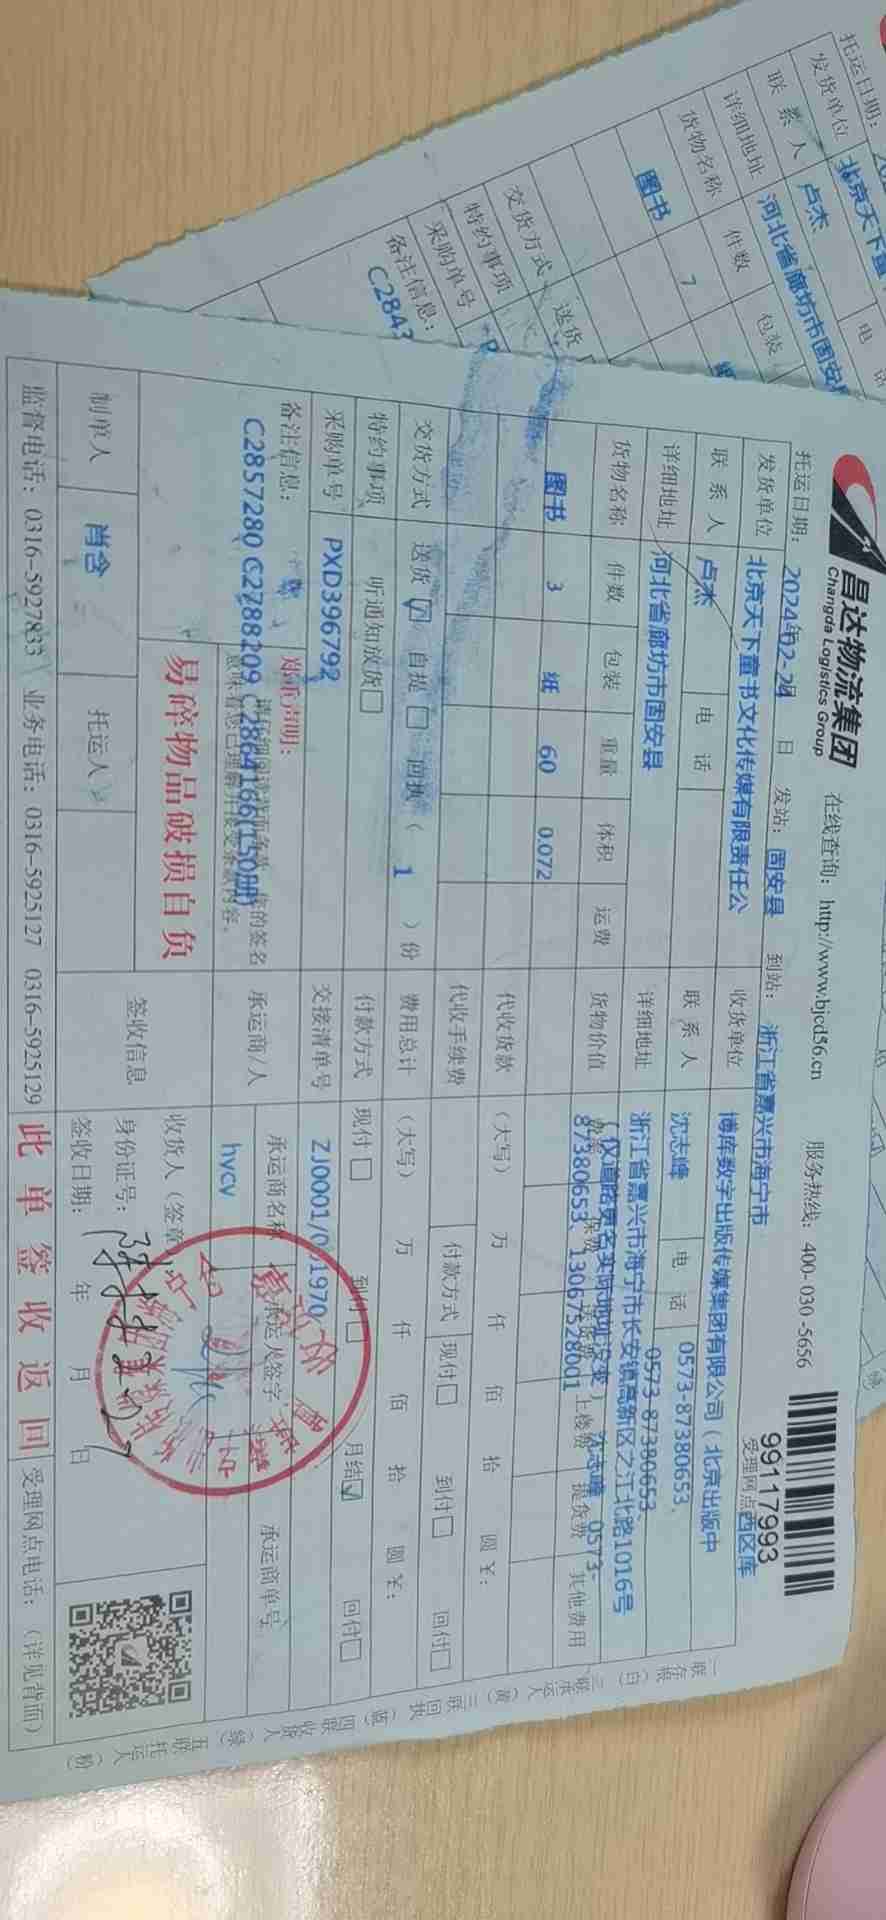 昌达物流集团
Changda Logistics Group
在线查询: http://www.bjcd56.cn 服务热线: 400-030-5656
99117993
托运日期: 2024年02-24 日 发站: 固安县 到站: 浙江省嘉兴市海宁市 受理网点西区库
发货单位 北京天下童书文化传媒有限责任公 收货单位 博库数字出版传媒集团有限公司(北京出版中
联系人 卢杰 电话 联系人 沈志峰 电话 0573-87380653
0573-87380653
详细地址 河北省廊坊市固安县 详细地址 浙江省嘉兴市海宁市长安镇高新区之江北路1016号
(仅道路更名实际地址没变) 沈志峰 0573-
87380653、13067528001
货物名称 件数 包装 重量 体积 运费 货物价值 保费 上楼费 提货费 其他费用
图书 3 纸 60 0.072
代收货款 (大写) 万 仟 佰 拾 圆¥:
代收手续费 付款方式 现付□ 到付□ 回付□
交货方式 送货☑ 自提□ 回执 (1)份 费用总计 (大写) 万 仟 佰 拾 圆¥:
特约事项 听通知放货□ 付款方式 现付□ 到付□ 月结☑ 回付□
采购单号 PXD396792 交接清单号 ZJ0001/001970
备注信息: 郑重声明:
C2857280 C2788209 C2864166(150册)
您的签名
意味着您已理解并接受条款内容。
承运商/人 承运商名称 承运人签字 承运商单号
hvcv
易碎物品破损自负
签收信息 收货人(签章)
身份证号:
签收日期: 年 月 日
制单人 肖含 托运人
监督电话: 0316-5927833 业务电话: 0316-5925127 0316-5925129 此单签收返回 受理网点电话: (详见背面)
一联存根(白) 二联承运人(黄) 三联回执(蓝) 四联收货人(绿) 五联托运人(粉)
托运日期:
发货单位 北京天下童
联系人 卢杰 电话
详细地址 河北省廊坊市固安
货物名称 件数 包装
图书 7
交货方式 送货
特约事项
采购单号
备注信息:
C2843